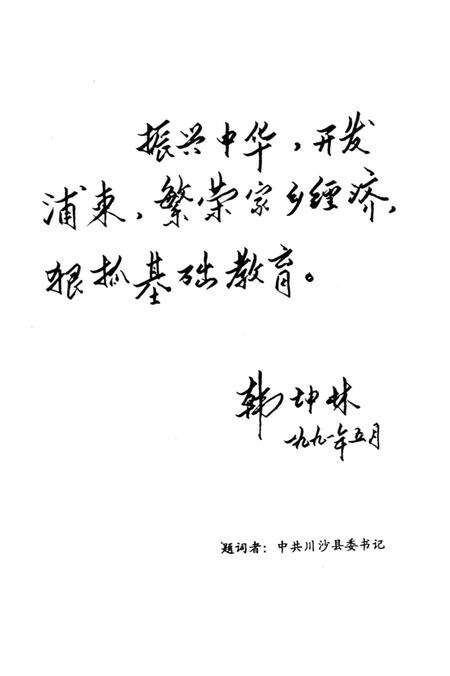 振兴中华，开发
浦东，繁荣家乡经济，
狠抓基础教育。
韩坤林
一九九一年五月
题词者：中共川沙县委书记